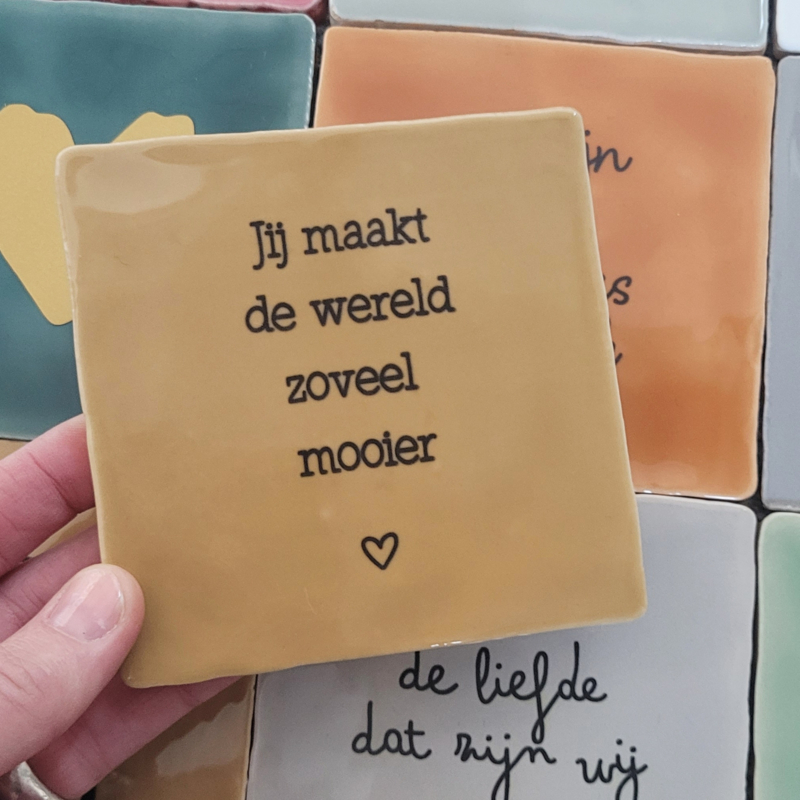 Jij maakt
de wereld
zoveel
mooier
de liefde
dat zijn wij